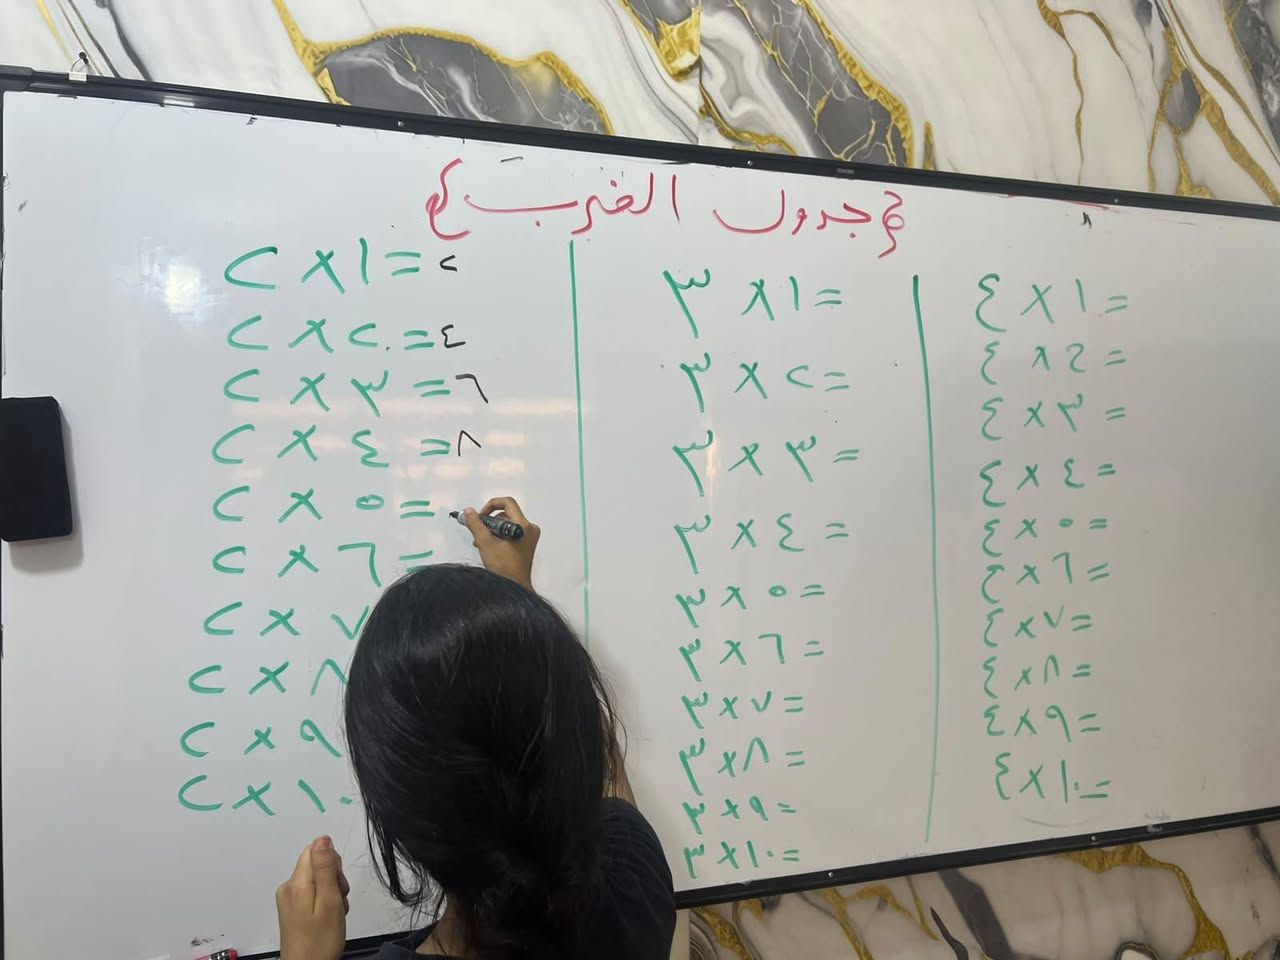 {جدول الضرب}
٢ × ١ = ٢
٢ × ٢ = ٤
٢ × ٣ = ٦
٢ × ٤ = ٨
٢ × ٥ =
٢ × ٦ =
٢ × ٧
٢ × ٨
٢ × ٩
٢ × ١٠
٣ × ١ =
٣ × ٢ =
٣ × ٣ =
٣ × ٤ =
٣ × ٥ =
٣ × ٦ =
٣ × ٧ =
٣ × ٨ =
٣ × ٩ =
٣ × ١٠ =
٤ × ١ =
٤ × ٢ =
٤ × ٣ =
٤ × ٤ =
٤ × ٥ =
٤ × ٦ =
٤ × ٧ =
٤ × ٨ =
٤ × ٩ =
٤ × ١٠ =